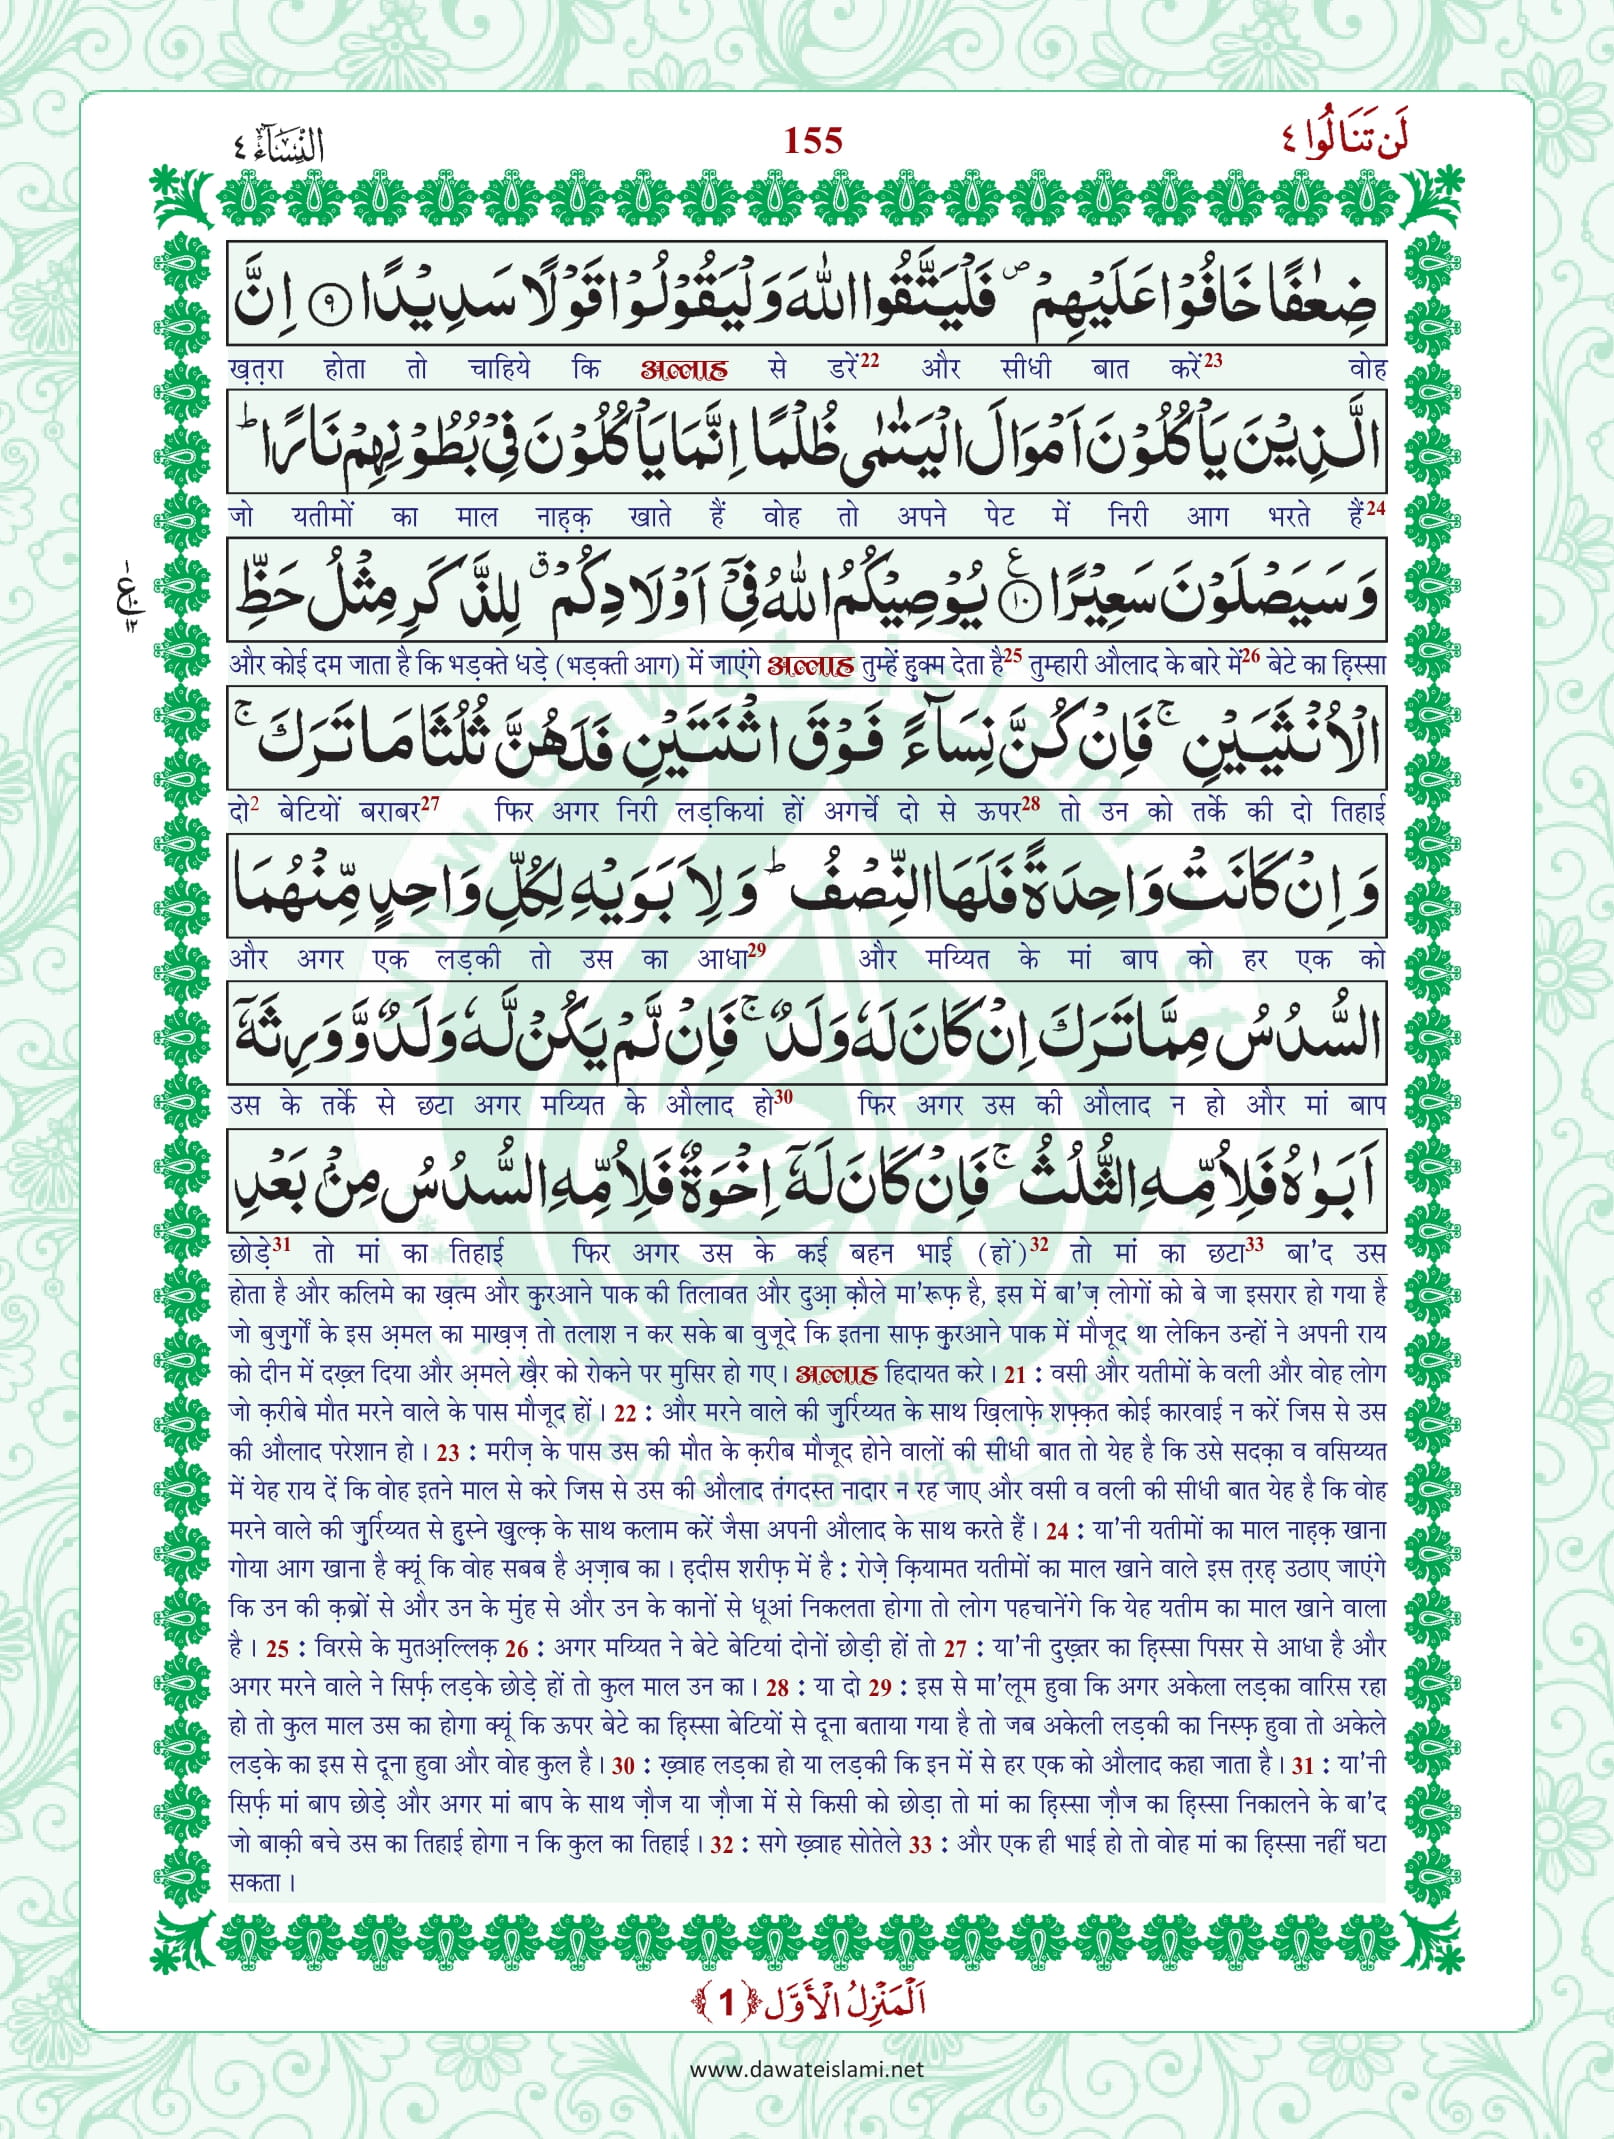 النِّسَآء ٤ 155 لَنْ تَنَالُوا ٤
ضِعٰفًا خَافُوْا عَلَیْهِمْ ۪ فَلْیَتَّقُوا اللّٰهَ وَ لْیَقُوْلُوْا قَوْلًا سَدِیْدًا ﴿۹﴾ اِنَّ
ख़त़रा होता तो चाहिये कि अल्लाह से डरें22 और सीधी बात करें23 वोह
الَّذِیْنَ یَاْكُلُوْنَ اَمْوَالَ الْیَتٰمٰى ظُلْمًا اِنَّمَا یَاْكُلُوْنَ فِیْ بُطُوْنِهِمْ نَارًا ؕ
जो यतीमों का माल नाह़क़ खाते हैं वोह तो अपने पेट में निरी आग भरते हैं24
وَ سَیَصْلَوْنَ سَعِیْرًا ﴿۱۰﴾ ع یُوْصِیْكُمُ اللّٰهُ فِیْۤ اَوْلَادِكُمْ ۗ لِلذَّكَرِ مِثْلُ حَظِّ
ع ۱۲
और कोई दम जाता है कि भड़क्ते धड़े (भड़क्ती आग) में जाएंगे अल्लाह तुम्हें हुक्म देता है25 तुम्हारी औलाद के बारे में26 बेटे का हि़स्सा
الْاُنْثَیَیْنِ ۚ فَاِنْ كُنَّ نِسَآءً فَوْقَ اثْنَتَیْنِ فَلَهُنَّ ثُلُثَا مَا تَرَكَ ۚ
दो2 बेटियों बराबर27 फिर अगर निरी लड़कियां हों अगर्चे दो से ऊपर28 तो उन को तर्के की दो तिहाई
وَ اِنْ كَانَتْ وَاحِدَةً فَلَهَا النِّصْفُ ؕ وَ لِاَبَوَیْهِ لِكُلِّ وَاحِدٍ مِّنْهُمَا
और अगर एक लड़की तो उस का आधा29 और मय्यित के मां बाप को हर एक को
السُّدُسُ مِمَّا تَرَكَ اِنْ كَانَ لَهٗ وَلَدٌ ۚ فَاِنْ لَّمْ یَكُنْ لَّهٗ وَلَدٌ وَّ وَرِثَهٗۤ
उस के तर्के से छटा अगर मय्यित के औलाद हो30 फिर अगर उस की औलाद न हो और मां बाप
اَبَوٰهُ فَلِاُمِّهِ الثُّلُثُ ۚ فَاِنْ كَانَ لَهٗۤ اِخْوَةٌ فَلِاُمِّهِ السُّدُسُ مِنْۢ بَعْدِ
छोड़े31 तो मां का तिहाई फिर अगर उस के कई बहन भाई (हों)32 तो मां का छटा33 बा'द उस
होता है और कलिमे का ख़त्म और क़ुरआने पाक की तिलावत और दुआ़ क़ौले मा'रूफ़ है, इस में बा'ज़ लोगों को बे जा इसरार हो गया है
जो बुज़ुर्गों के इस अ़मल का माख़ज़ तो तलाश न कर सके बा वुजूदे कि इतना साफ़ क़ुरआने पाक में मौजूद था लेकिन उन्हों ने अपनी राय
को दीन में दख़्ल दिया और अ़मले ख़ैर को रोकने पर मुसिर हो गए। अल्लाह हिदायत करे। 21 : वसी और यतीमों के वली और वोह लोग
जो क़रीबे मौत मरने वाले के पास मौजूद हों। 22 : और मरने वाले की ज़ुर्रिय्यत के साथ ख़िलाफ़े शफ़्क़त कोई कारवाई न करें जिस से उस
की औलाद परेशान हो। 23 : मरीज़ के पास उस की मौत के क़रीब मौजूद होने वालों की सीधी बात तो येह है कि उसे सदक़ा व वसिय्यत
में येह राय दें कि वोह इतने माल से करे जिस से उस की औलाद तंगदस्त नादार न रह जाए और वसी व वली की सीधी बात येह है कि वोह
मरने वाले की ज़ुर्रिय्यत से हुस्ने ख़ुल्क़ के साथ कलाम करें जैसा अपनी औलाद के साथ करते हैं। 24 : या'नी यतीमों का माल नाह़क़ खाना
गोया आग खाना है क्यूं कि वोह सबब है अ़ज़ाब का। ह़दीस शरीफ़ में है : रोज़े क़ियामत यतीमों का माल खाने वाले इस त़रह़ उठाए जाएंगे
कि उन की क़ब्रों से और उन के मुंह से और उन के कानों से धूआं निकलता होगा तो लोग पहचानेंगे कि येह यतीम का माल खाने वाला
है। 25 : विरसे के मुतअ़ल्लिक़ 26 : अगर मय्यित ने बेटे बेटियां दोनों छोड़ी हों तो 27 : या'नी दुख़्तर का हि़स्सा पिसर से आधा है और
अगर मरने वाले ने सिर्फ़ लड़के छोड़े हों तो कुल माल उन का। 28 : या दो 29 : इस से मा'लूम हुवा कि अगर अकेला लड़का वारिस रहा
हो तो कुल माल उस का होगा क्यूं कि ऊपर बेटे का हि़स्सा बेटियों से दूना बताया गया है तो जब अकेली लड़की का निस्फ़ हुवा तो अकेले
लड़के का इस से दूना हुवा और वोह कुल है। 30 : ख़्वाह लड़का हो या लड़की कि इन में से हर एक को औलाद कहा जाता है। 31 : या'नी
सिर्फ़ मां बाप छोड़े और अगर मां बाप के साथ ज़ौज या ज़ौजा में से किसी को छोड़ा तो मां का हि़स्सा ज़ौज का हि़स्सा निकालने के बा'द
जो बाक़ी बचे उस का तिहाई होगा न कि कुल का तिहाई। 32 : सगे ख़्वाह सोतेले 33 : और एक ही भाई हो तो वोह मां का हि़स्सा नहीं घटा
सकता।
اَلْمَنْزِلُ الْاَوَّل ﴿1﴾
www.dawateislami.net